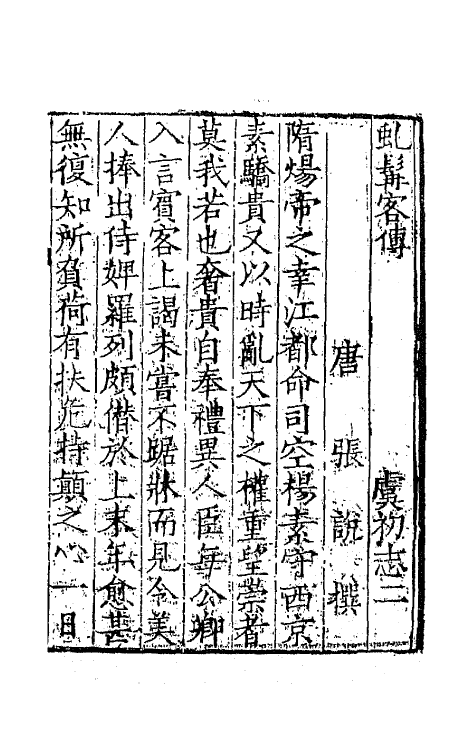 虬髯客傳　虞初志二
唐張說撰
隋煬帝之幸江都命司空楊素守西京
素驕貴又以時亂天下之權重望崇者
莫我若也奢貴自奉禮異人臣每公卿
入言賓客上謁未嘗不踞牀而見令美
人捧出侍婢羅列頗僣於上末年愈甚
無復知所負荷有扶危持顛之心一日